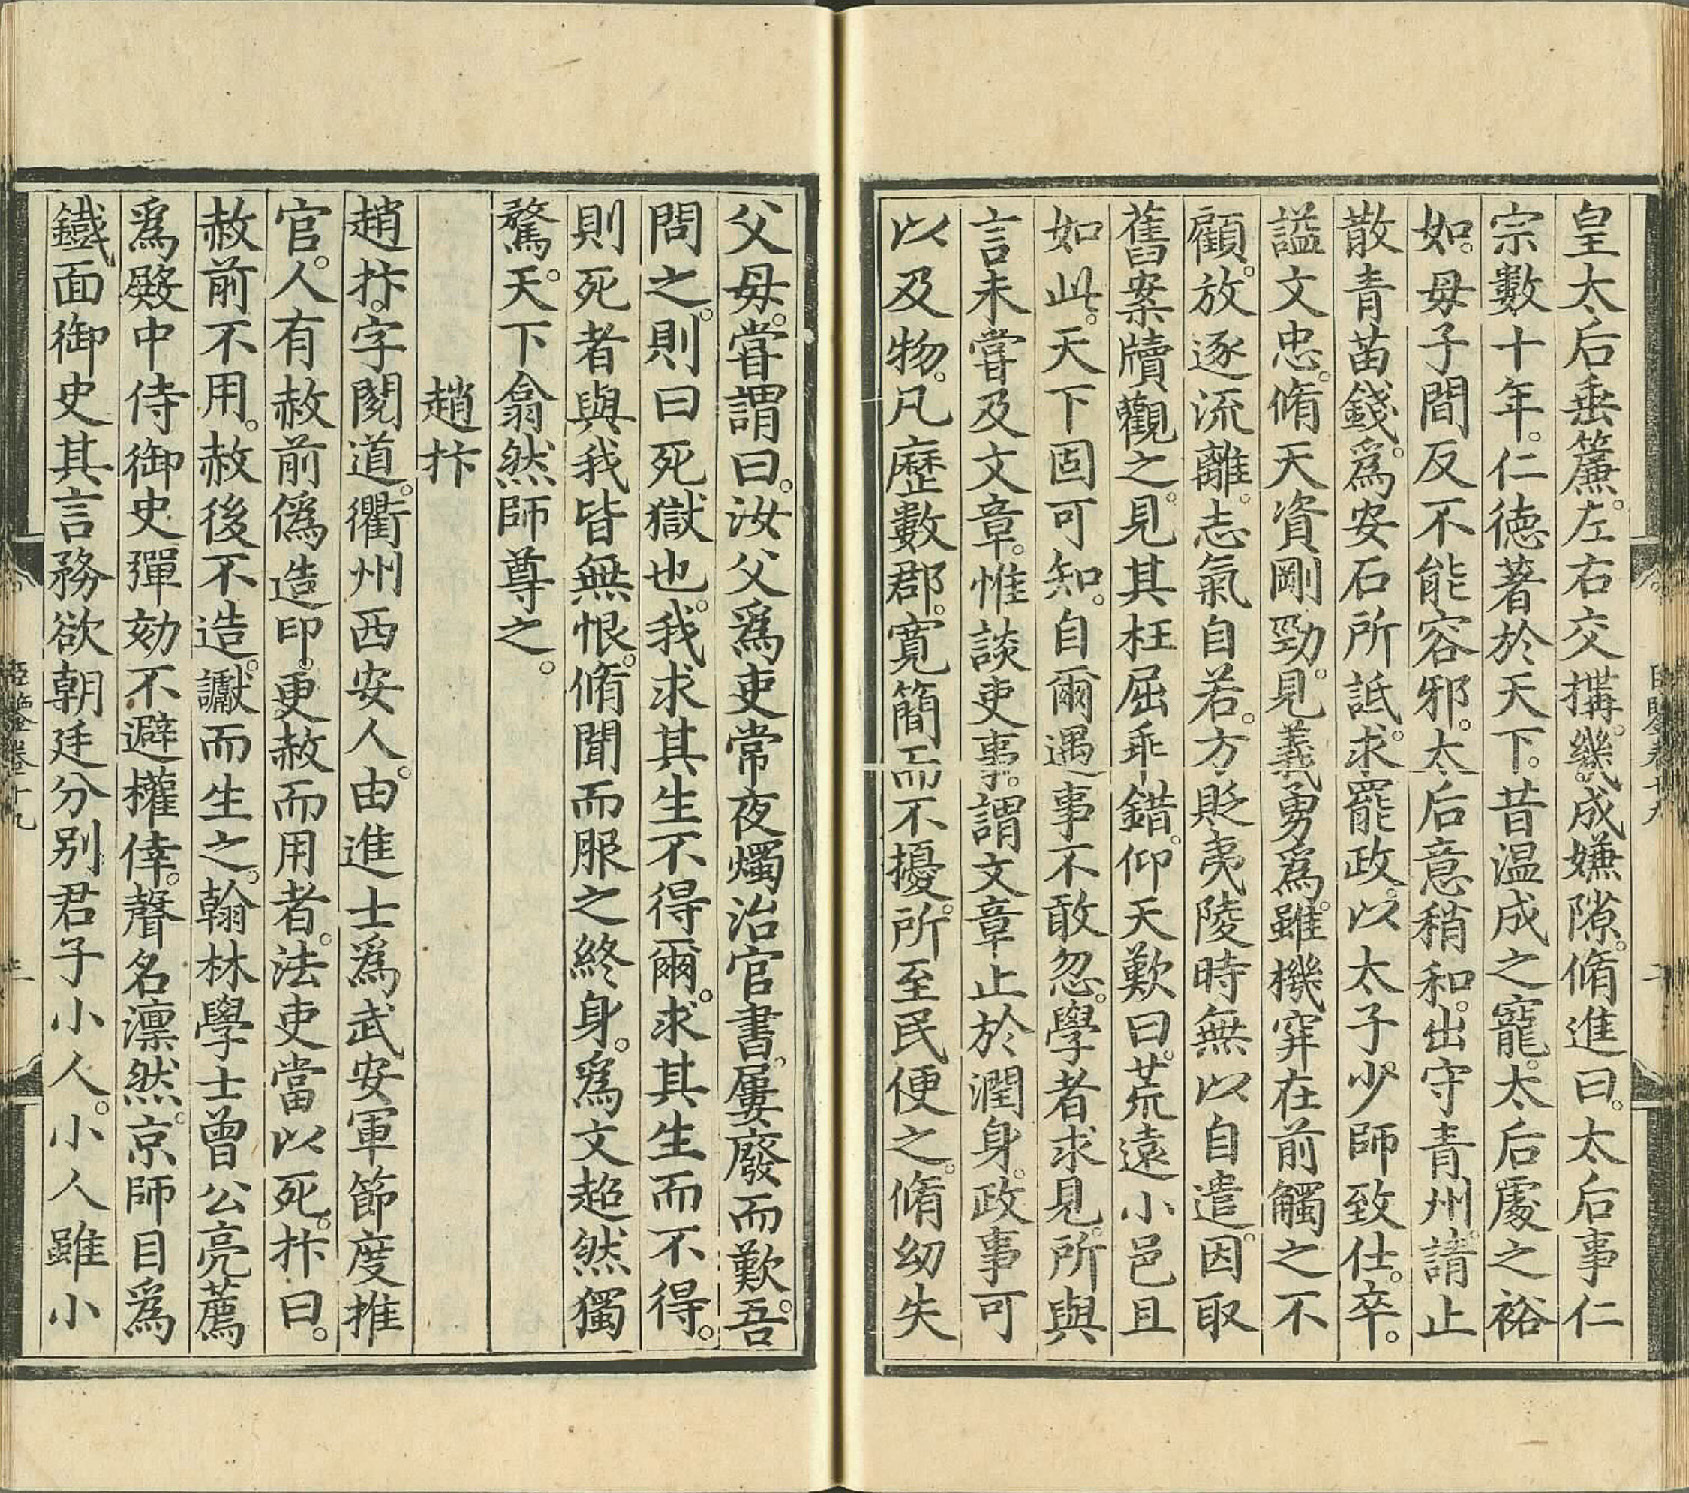 皇太后垂簾。左右交搆。幾成嫌隙。脩進曰。太后事仁
宗數十年。仁德著於天下。昔温成之寵。太后處之裕
如。毋子間反不能容邪。太后意稍和。出守青州。請止
散青苗錢。爲安石所詆。求罷政。以太子少師致仕。卒。
謚文忠。脩天資剛勁。見義勇爲。雖機穽在前觸之不
顧。放逐流離。志氣自若。方貶夷陵時無以自遣。因取
舊案牘觀之。見其枉屈乖錯。仰天歎曰。荒遠小邑且
如此。天下固可知。自爾遇事不敢忽。學者求見。所與
言未嘗及文章。惟談吏事。謂文章止於潤身。政事可
以及物。凡歷數郡。寬簡而不擾。所至民便之。脩幼失
父毋。嘗謂曰。汝父爲吏常夜燭治官書。屢廢而歎。吾
問之。則曰死獄也。我求其生不得爾。求其生而不得。
則死者與我皆無恨。脩聞而服之終身。爲文超然獨
騖。天下翕然師尊之。
趙抃
趙抃。字閱道。衢州西安人。由進士爲武安軍節度推
官。人有赦前僞造印。更赦而用者。法吏當以死。抃曰。
赦前不用。赦後不造。讞而生之。翰林學士曾公亮薦
爲殿中侍御史彈劾不避權倖。聲名凛然。京師目爲
鐵面御史其言務欲朝廷分别君子小人。小人雖小